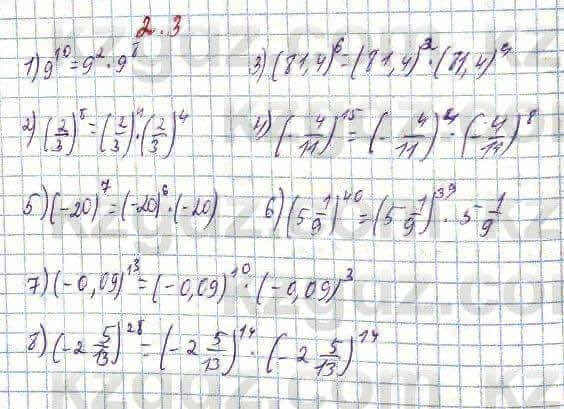 2.3
1) 9^10 = 9^2 · 9^8 3) (81,4)^6 = (81,4)^2 · (81,4)^4
2) (2/3)^8 = (2/3)^4 · (2/3)^4 4) (- 4/11)^15 = (- 4/11) · (- 4/11)^8
5) (-20)^7 = (-20)^6 · (-20) 6) (5 1/9)^40 = (5 1/9)^39 · 5 1/9
7) (-0,09)^13 = (-0,09)^10 · (-0,09)^3
8) (-2 5/13)^28 = (-2 5/13)^14 · (-2 5/13)^14